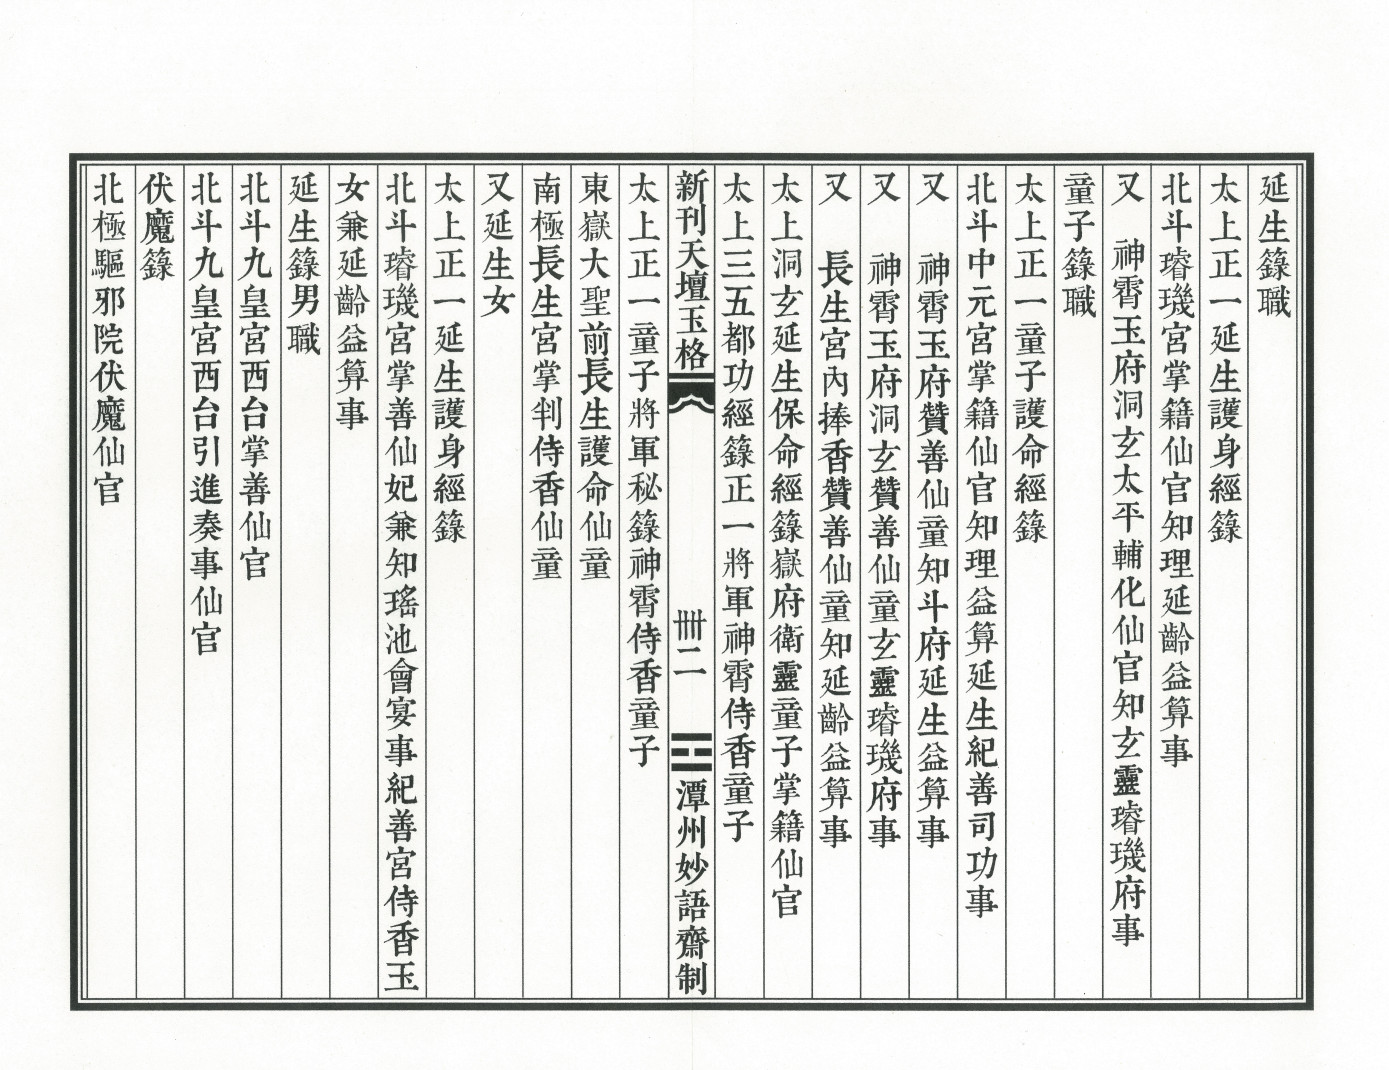 延生籙職
太上正一延生護身經籙
北斗璿璣宮掌籍仙官知理延齡益算事
又　神霄玉府洞玄太平輔化仙官知玄靈璿璣府事
童子籙職
太上正一童子護命經籙
北斗中元宮掌籍仙官知理益算延生紀善司功事
又　神霄玉府贊善仙童知斗府延生益算事
又　神霄玉府洞玄贊善仙童玄靈璿璣府事
又　長生宮內捧香贊善仙童知延齡益算事
太上洞玄延生保命經籙嶽府衛靈童子掌籍仙官
太上三五都功經籙正一將軍神霄侍香童子
新刊天壇玉格　卌二　潭州妙語齋制
太上正一童子將軍秘籙神霄侍香童子
東嶽大聖前長生護命仙童
南極長生宮掌判侍香仙童
又延生女
太上正一延生護身經籙
北斗璿璣宮掌善仙妃兼知瑤池會宴事紀善宮侍香玉
女兼延齡益算事
延生籙男職
北斗九皇宮西台掌善仙官
北斗九皇宮西台引進奏事仙官
伏魔籙
北極驅邪院伏魔仙官